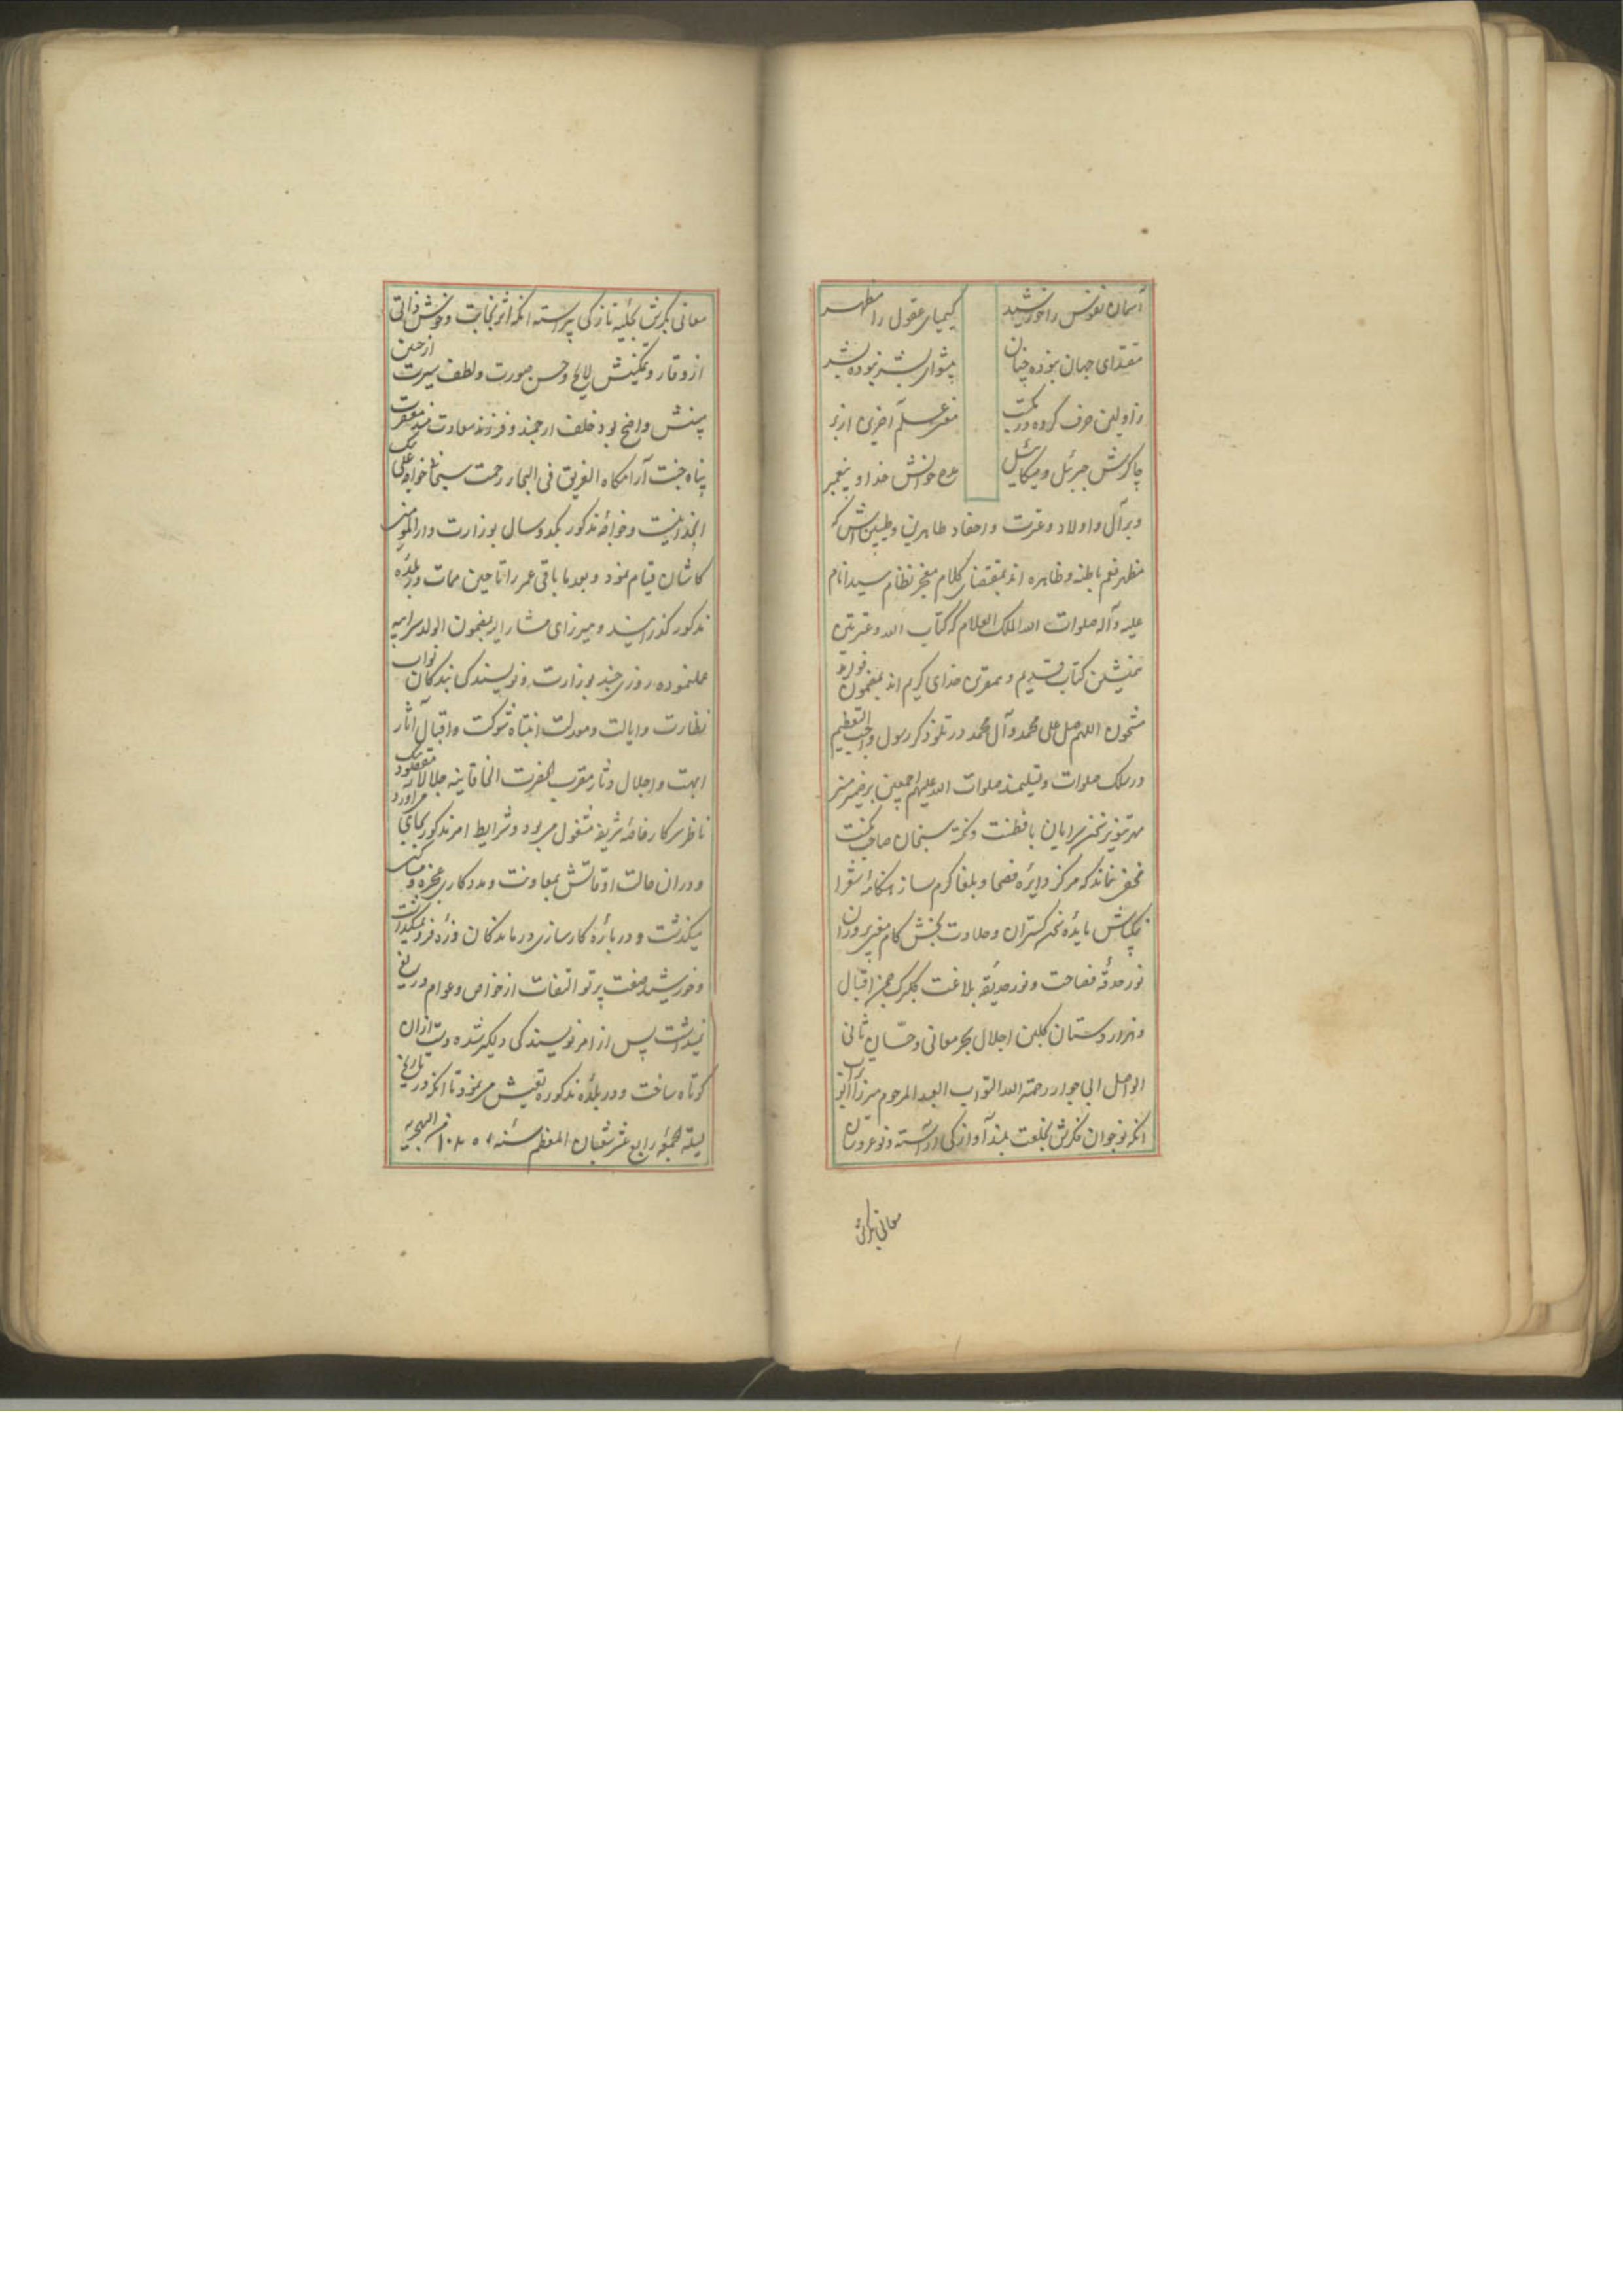 آسمان نفوس را خورشید کیمیای عقول را مظهر
مقتدای جهان نبوده چنان پیشوای بشر نبوده بشر
ز اولین حرف کرده در مکتب علم آخرین از بر
چاکرش جبرئیل و میکائیل خوانش خدا و پیغمبر
و بر آل و اولاد و عترت و احفاد طاهرین و طیبین اش که
مظهر نعم باطنه و ظاهره اند بمقتضای کلام معجز نظام سید انام
علیه و آله صلوات الله الملک العلام که کتاب الله و عترتی
همنشین کتاب قدیم و مقرب خدای کریم اند بمضمون
مشحون اللهم صل علی محمد و آل محمد در تلو ذکر رسول واجب التعظیم
در سلک صلوات و تسلیمند صلوات الله علیهم اجمعین بر ضمیر منیر
مهر تنویر سخن سرایان با فطنت و نکته سنجان صاحب
مخفی نماند که مرکز دایره فصحا و بلغا کرم ساز هنکامه شعرا
نمکپاش مایده سخن کستران و حلاوت بخش کام معنی پروران
نور حدقه فصاحت و نور حدیقه بلاغت کلبرک چمن اقبال
و هزار دستان کلبن اجلال بحر معانی و حسان ثانی
الواصل الی جوار رحمة الله التواب العبد المرحوم میرزا
انکه نوجوان فکرش بخلعت بلند آوازکی آراسته و نو عروسان
معانی بکرش
معانی بکرش بحلیه نازکی پیراسته انکه اثر نجابت و خوش ذاتی
از وقار و تمکینش لایح و حسن صورت و لطف سیرت از جبین
مبینش واضح بود خلف ارجمند و فرزند سعادتمند مغفرت
پناه جنت آرامکاه الغریق فی البحار رحمت سبحانی خواجه علی
و خواجه مذکور یکدو سال بوزارت دار المؤمنین
کاشان قیام نمود و بعد ما باقی عمر را تا حین ممات در بلده
مذکور کذرانید و میرزای مشار الیه بمضمون الولد سر ابیه
عملنموده روزی چند بوزارت و نویسندکی بندکان نواب
نظارت و ایالت و معدلت انتباه شوکت و اقبال آثار
ابهت و اجلال دثار مقرب الحضرت الخاقانیه جلالا
ناظر سرکار خاصه شریفه مشغول میبود و شرایط امر مذکور بجای می آورد
و در ان حالت اوقاتش بمعاونت و مددکاری عجزه و
میکذشت و درباره کارسازی درماندکان ذره فرو نمیکذاشت
و خورشید صفت پرتو التفات از خواص و عوام دریغ
نمیداشت پس از امر نویسندکی دلکیر شده دست از ان
کوتاه ساخت و در بلده مذکوره تعیش مینمود تا انکه در تاریخ
لیلة الجمعه رابع عشر شعبان المعظم سنه ۱۰۸۵ من الهجریه